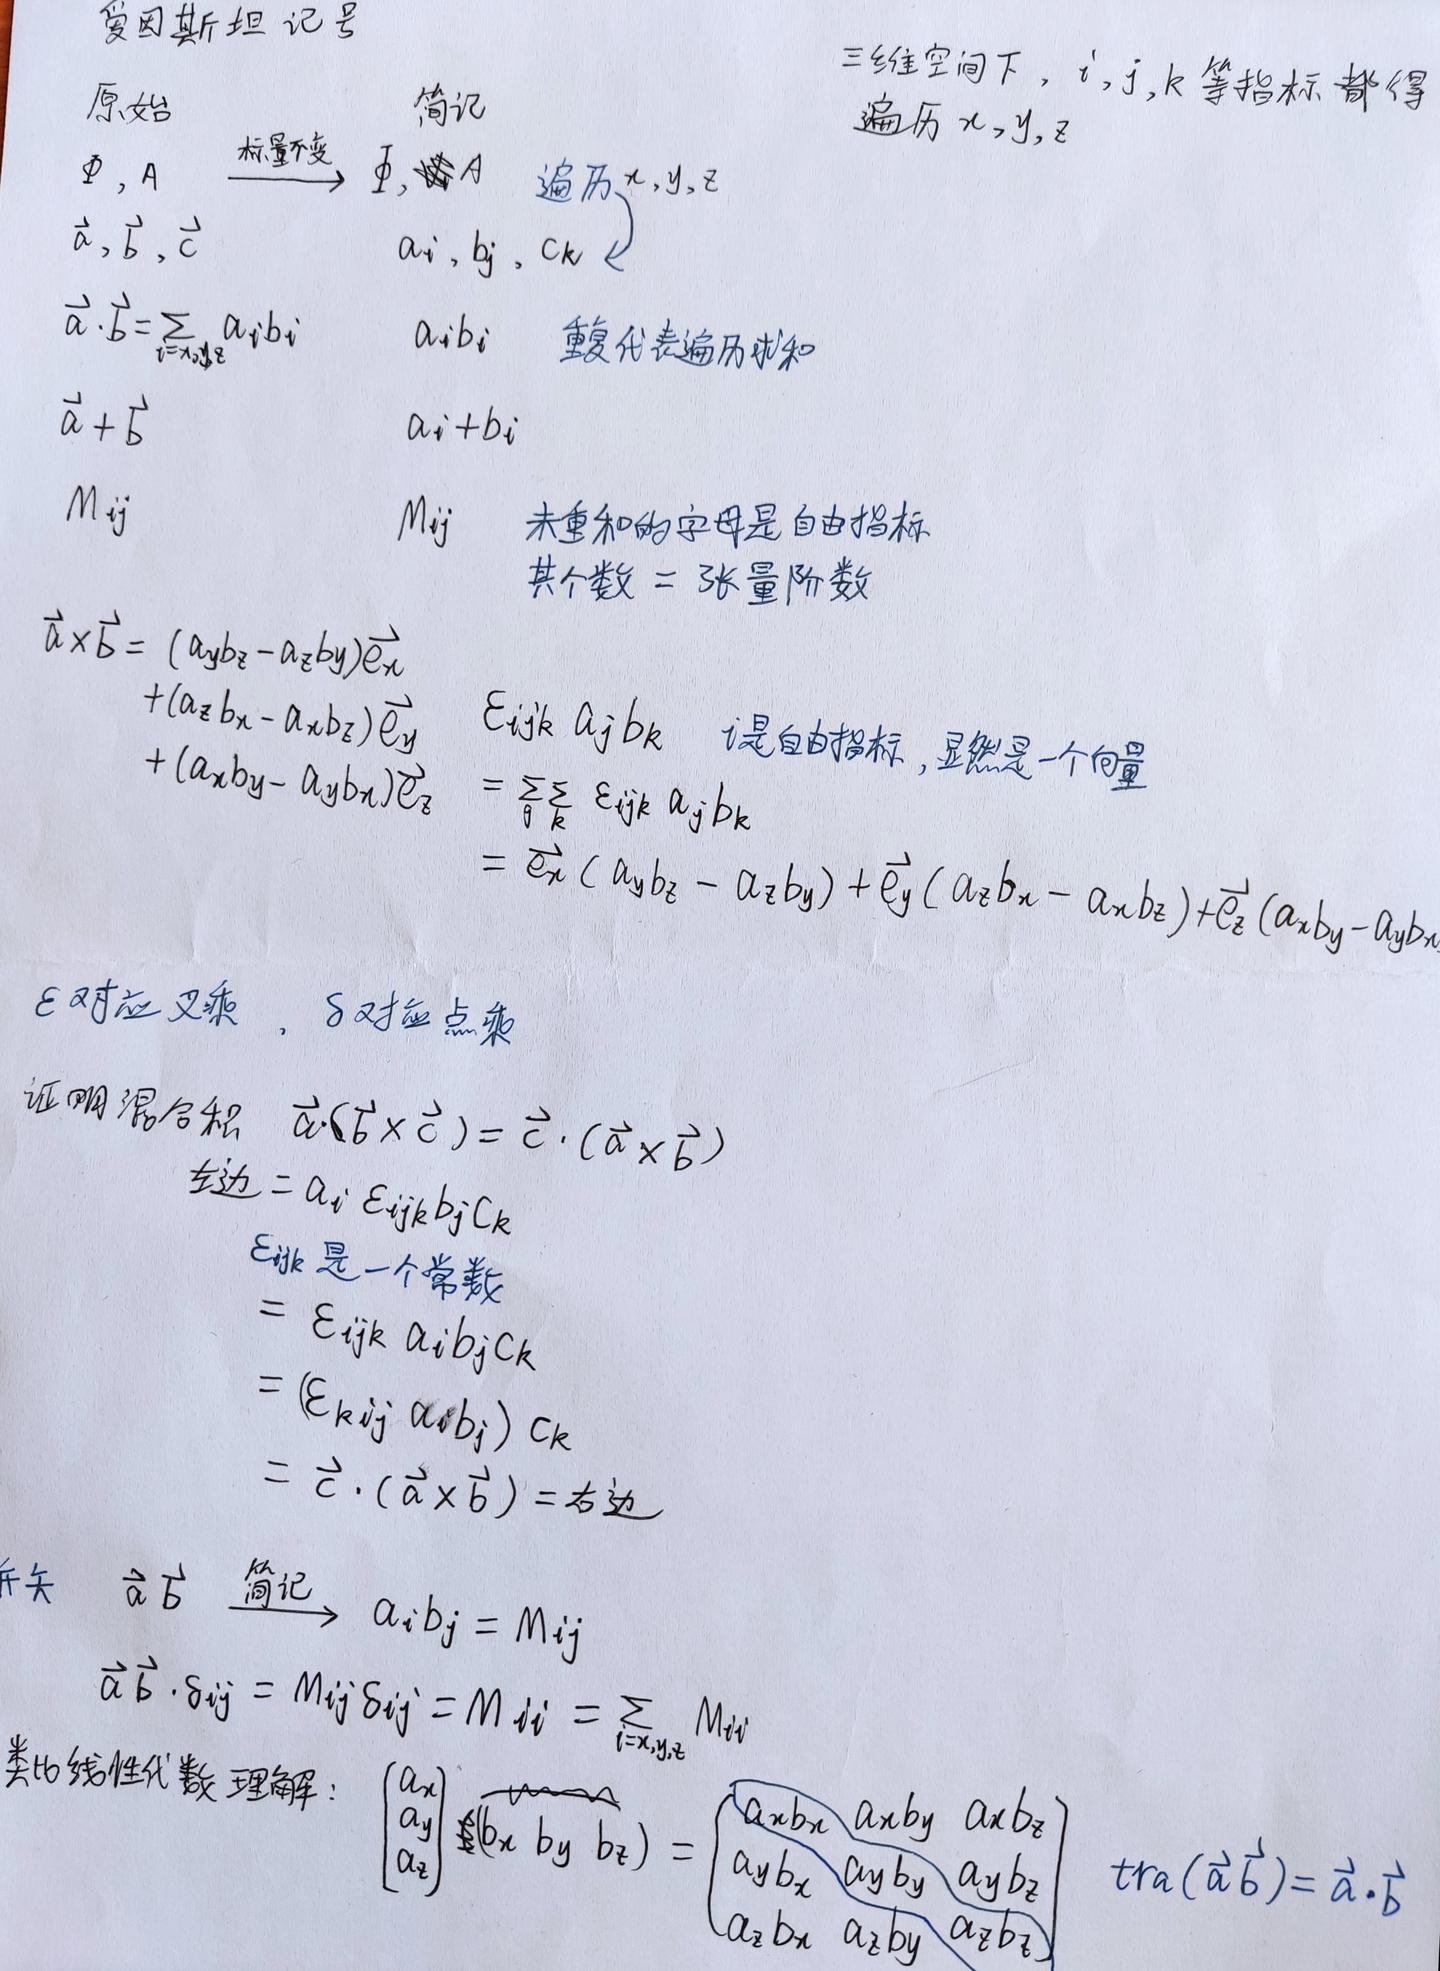 爱因斯坦记号
三维空间下，i,j,k等指标都得
遍历x,y,z
原始 简记
Φ, A 标量不变→ Φ, A 遍历x,y,z
a⃗, b⃗, c⃗ aᵢ, bⱼ, cₖ
a⃗·b⃗=∑_{i=x,y,z} aᵢbᵢ aᵢbᵢ 重复代表遍历求和
a⃗+b⃗ aᵢ+bᵢ
Mᵢⱼ Mᵢⱼ 未重和的字母是自由指标
其个数 = 张量阶数
a⃗×b⃗= (a_y b_z - a_z b_y)e⃗_x
+(a_z b_x - a_x b_z)e⃗_y εᵢⱼₖ aⱼbₖ i是自由指标，显然是一个向量
+(a_x b_y - a_y b_x)e⃗_z = ∑_j ∑_k εᵢⱼₖ aⱼbₖ
= e⃗_x (a_y b_z - a_z b_y) + e⃗_y (a_z b_x - a_x b_z) + e⃗_z (a_x b_y - a_y b_x
ε对应叉乘，δ对应点乘
证明混合积 a⃗·(b⃗×c⃗) = c⃗·(a⃗×b⃗)
左边 = aᵢ εᵢⱼₖ bⱼcₖ
εᵢⱼₖ 是一个常数
= εᵢⱼₖ aᵢbⱼcₖ
= (εₖᵢⱼ aᵢbⱼ) cₖ
= c⃗·(a⃗×b⃗) = 右边
并矢 a⃗b⃗ 简记→ aᵢbⱼ = Mᵢⱼ
a⃗b⃗·δᵢⱼ = Mᵢⱼδᵢⱼ = Mᵢᵢ = ∑_{i=x,y,z} Mᵢᵢ
类比线性代数理解： [a_x a_y a_z] (b_x b_y b_z) = [a_x b_x a_x b_y a_x b_z
a_y b_x a_y b_y a_y b_z
a_z b_x a_z b_y a_z b_z] tra(a⃗b⃗) = a⃗·b⃗